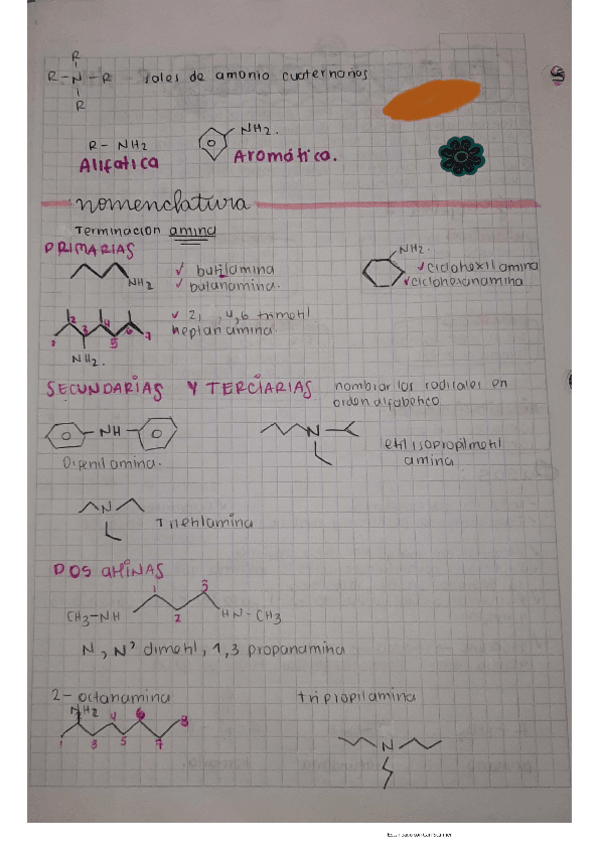 R
R-N-R sales de amonio cuaternarios
R
R- NH2
NH2.
Alifatica
Aromática.
nomenclatura
Terminacion amina
PRIMARIAS
NH2
✓ butilamina
✓ butanamina.
NH2.
✓ciclohexilamina
✓ciclohexanamina
2 3 4 5 6 7
NH2.
✓ 2, ,4,6 trimetil
heptanamina.
SECUNDARIAS Y TERCIARIAS nombrar los radicales en
orden alfabetico
NH
Difenilamina.
N
etil isopropilmetil
amina
N
Trietilamina
DOS AMINAS
1 2 3
CH3-NH
HN-CH3
N, N' dimetil, 1,3 propanamina
2-octanamina
NH2
1 3 4 5 6 7 8
tripropilamina
N